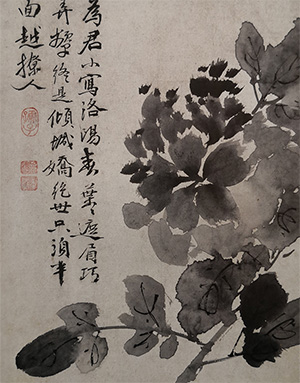 為君小寫洛陽春葉々遮眉巧
弄顰終是傾城嬌絕世只須半
面越撩人